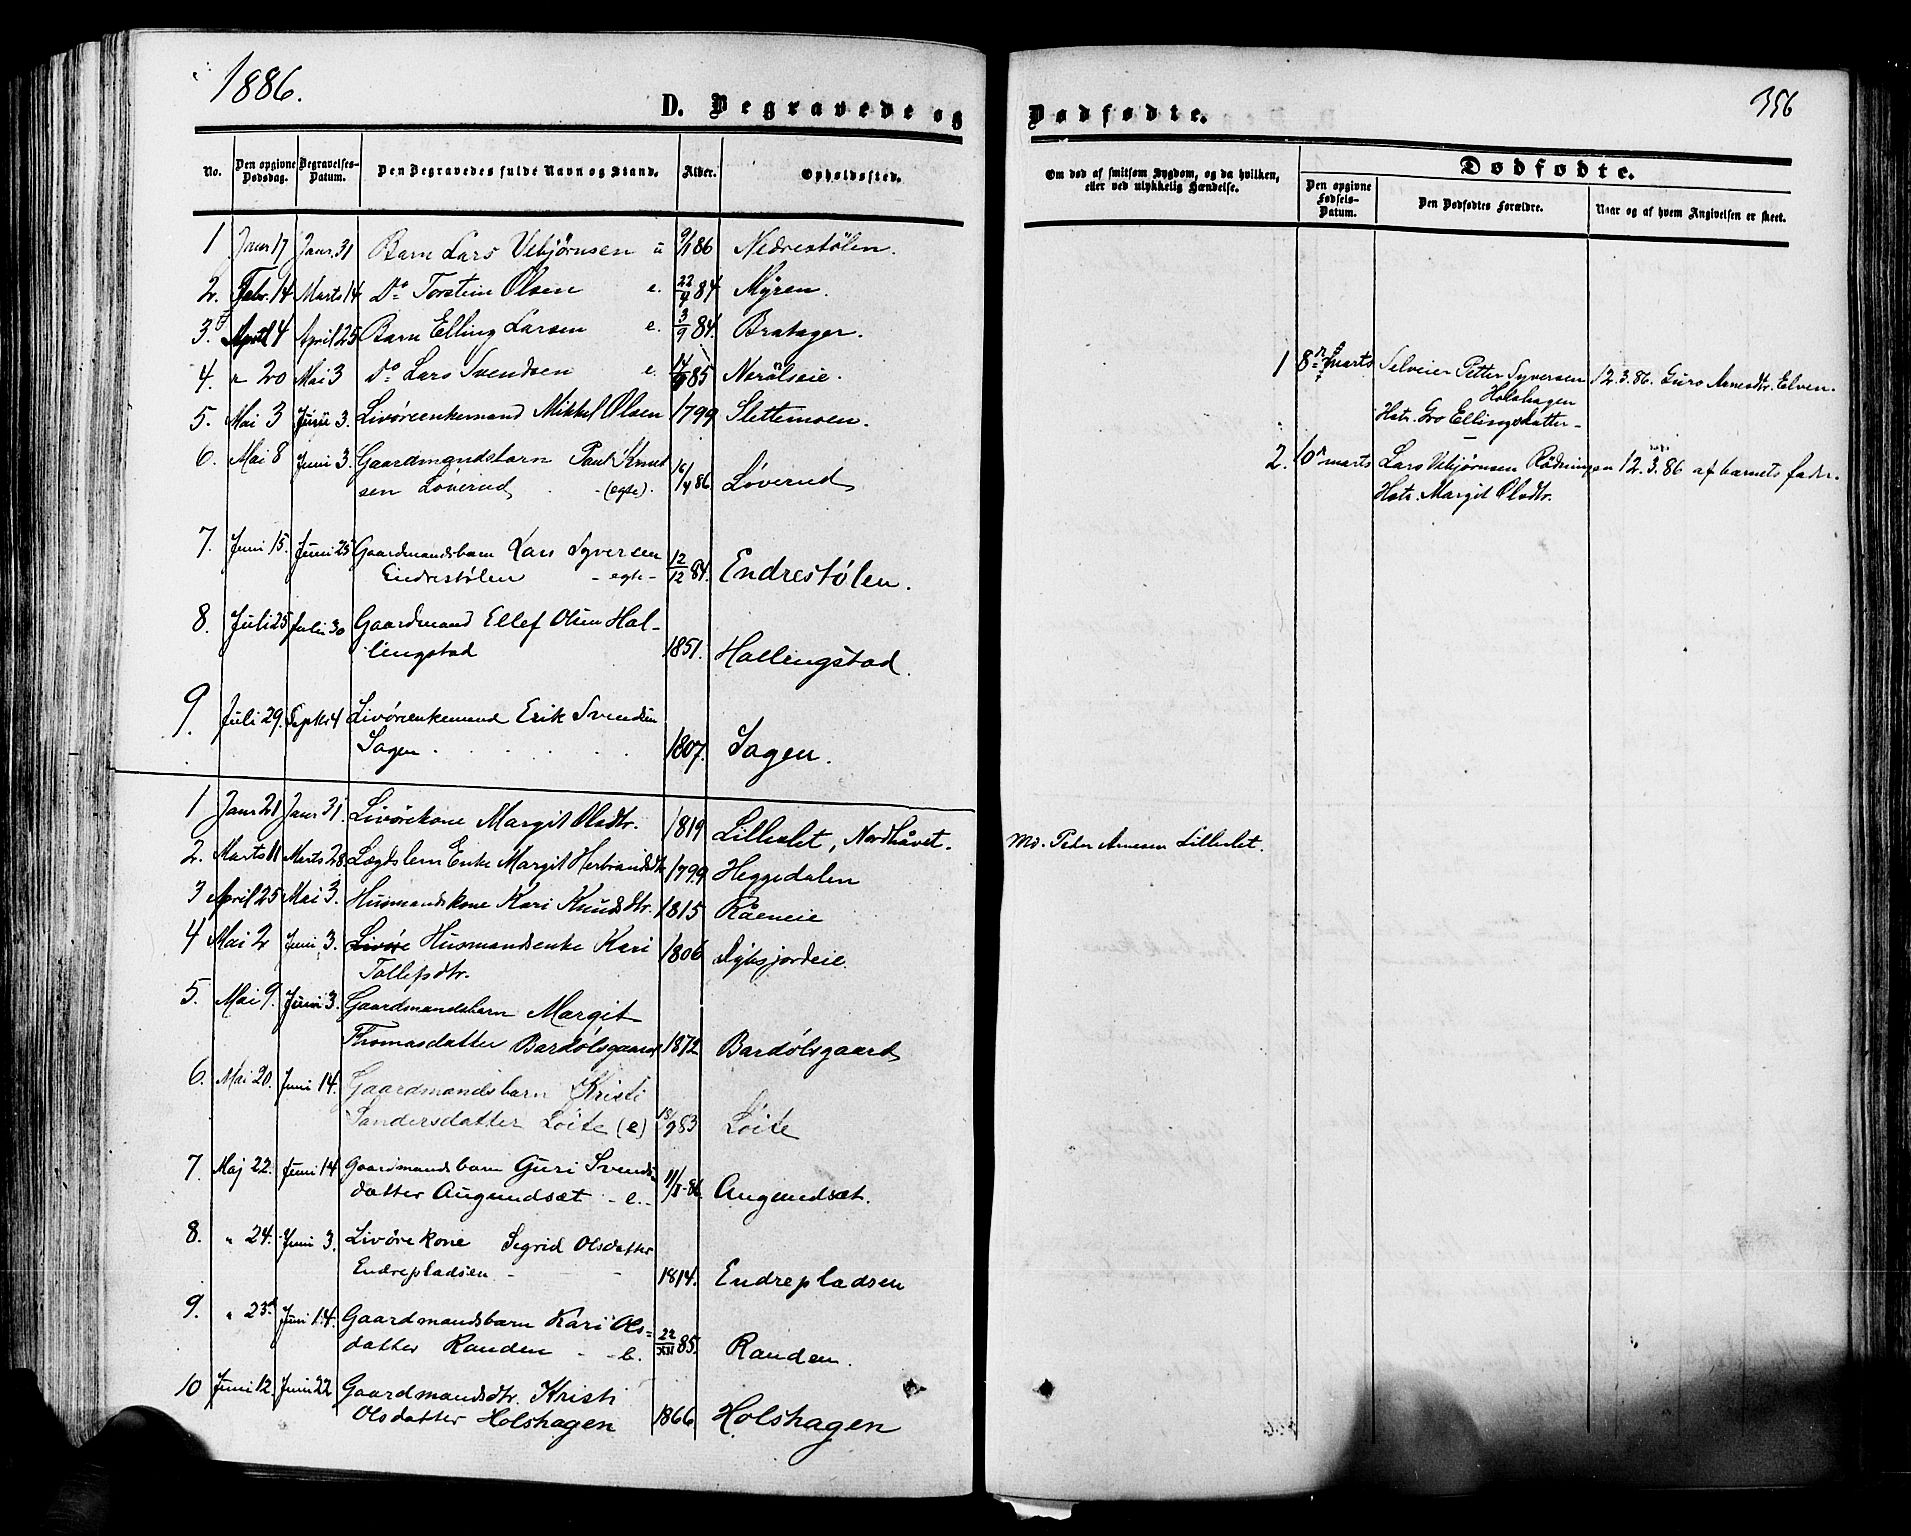 1886.
D. Begravede og
No.
Den opgivne Dødsdag.
Begravelses-Datum.
Den Begravedes fulde Navn og Stand.
Alder.
Opholdssted.
1 Janr 17 Janr. 31 Barn Lars Vebjørnsen u 9/1 86 Nedrestølen.
2. Febr. 14 Marts 14 Do Torstein Olsen e. 22/4 84 Myren.
3. April 4 April 25 Barn Elling Larsen e. 3/9 84. Bratager.
4. " 20 Mai 3 Do Lars Svendsen e. 17/9 85 Noralseie.
5. Mai 3 Juni 3. Livøreenkemand Mikkel Olsen 1799 Slettemoen.
6. Mai 8 Juni 3. Gaardmandsbarn Paul Knud
sen Løverud - (egte). 16/4 86 Løverud
7. Juni 15. Juni 25 Gaardmandsbarn Lars Syversen
Endrestølen - egte - 12/12 84. Endrestølen.
8. Juli 25 Juli 30 Gaardmand Ellef Olsen Hal-
lingstad 1851. Hallingstad.
9. Juli 29. Septbr 4 Livøreenkemand Erik Svendsen
Sagen . . . . 1807. Sagen.
1 Janr 21 Janr 31. Livørekone Margit Olsdtr. 1819 Lilleslet, Nordhåvet.
2. Marts 11 Marts 28. Lægdslem Enke Margit Herbrandsdtr 1799 Heggedalen
3 April 25 Mai 3. Husmandskone Kari Knudsdtr. 1815 Råeneie
4 Mai 2 Juni 3. Livøre Husmandsenke Kari 1806 Dybsjordeie.
Tollefsdtr.
5. Mai 9. Juni 3. Gaardsmandsbarn Margit
Thomasdatter Bardølsgaard 1872 Bardølsgaard
6. Mai 20. Juni 14. Gaardmandsbarn Kristi
Sandersdatter Løite (e) 18/9 83 Løite
7 Maj 22. Juni 14 Gaardmandsbarn Guri Svends
datter Augundsæt - e. - 11/5-86 Augundsæt.
8. " 24. Juni 3. Livørekone Sigrid Olsdatter
Endrepladsen - - 1814. Endrepladsen
9. " 23. Juni 14. Gaardmandsbarn Kari Ols=
datter Randen - - e. 22/XII 85. Randen.
10 Juni 12. Juni 22 Gaardmandsdtr. Kristi
Olsdatter Holshagen 1866 Holshagen
Dødfødte.
356
Om død af smitsom Sygdom, og da hvilken, eller ved ulykkelig Hændelse.
Dødfødte.
Den opgivne Fødsels-Datum.
Den Dødfødtes Forældre.
Naar og af hvem Angivelsen er skeet.
1 8de marts Selveier Petter Syversen 12.3.86. Guro Arnesdtr. Elven.
Holshagen
Hstr. Gro Ellingsdatter -
2. 10 marts Lars Vebjørnsen Rødningen 12.3.86 af barnets fader.
Hstr. Margit Olsdtr.
Md. Peder Arnesen Lilleslet.